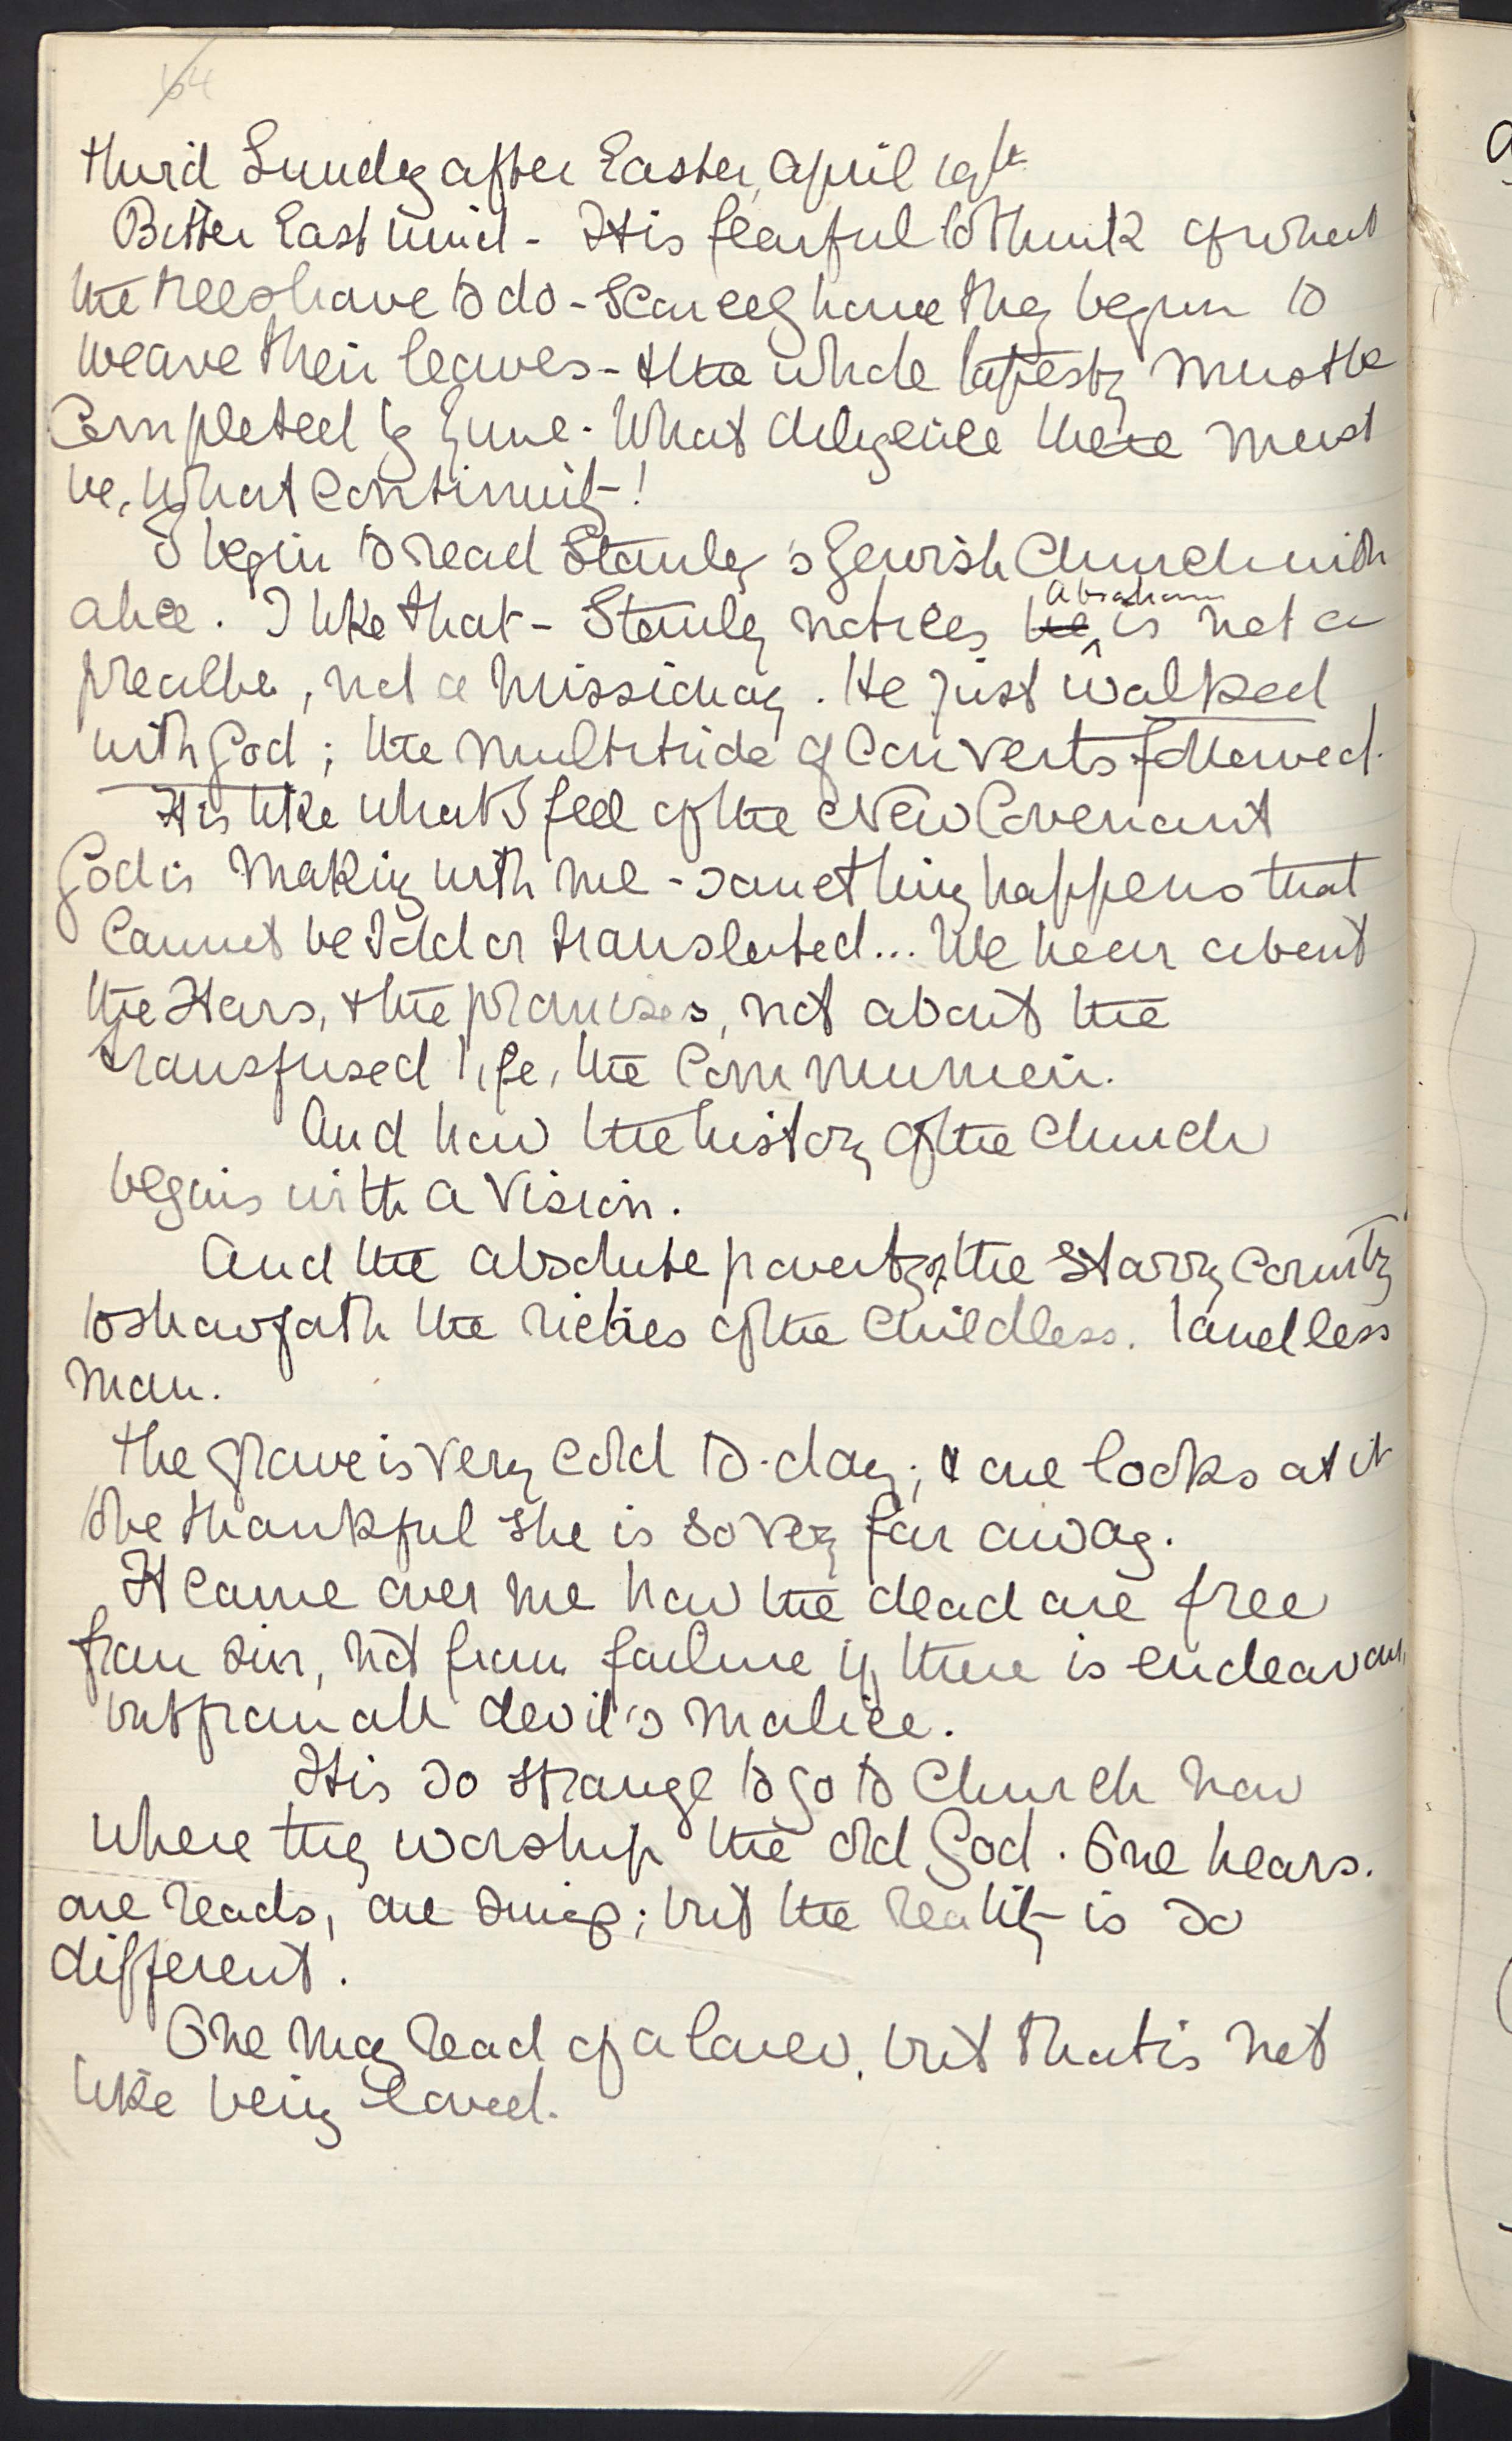 64
third Sunday after Easter, April 19th
Bitter East wind - It is fearful to think of what
the trees have to do - scarcely have they begun to
weave their leaves - & the whole tapestry must be
Completed by June. What diligence there must
be, what continuity!
I begin to read Stanley's Jewish Church with
alice. I like that - Stanley notices he Abraham is not a
preacher, not a missionary. He just walked
with God; the multitude of Converts followed.
It is like what I feel of the New Covenant
God is making with me - something happens that
Cannot be told or translated... We hear about
the Stars, & the promises, not about the
transfused life, the Communion.
And how the history of the Church
begins with a Vision.
And the absolute poverty of the starry County
to shew forth the riches of the Childless, landless
man.
the grave is very cold to-day; & one looks at it
to be thankful she is so very far away.
It came over me how the dead are free
from sin, not from failure if there is endeavour,
but from all devil's malice.
It is so strange to go to Church now
where they worship the old God. One hears,
one reads, one sings; but the reality is so
different.
One may read of a lover, but that is not
like being loved.